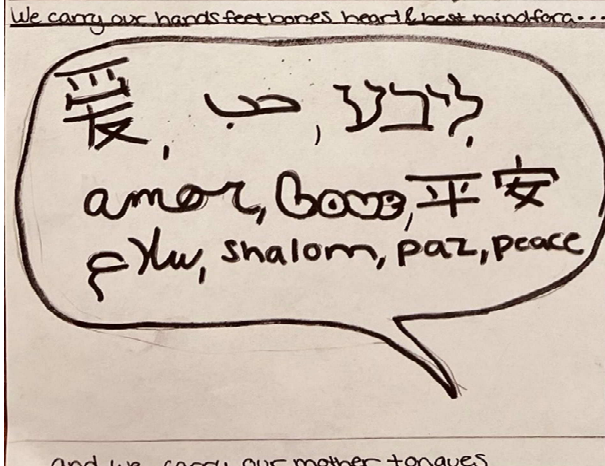 We carry our hands feet bones heart & best mind for a...
愛, حب, ליבע,
amor, 平安
سلام, shalom, paz, peace
and we carry our mother tongues